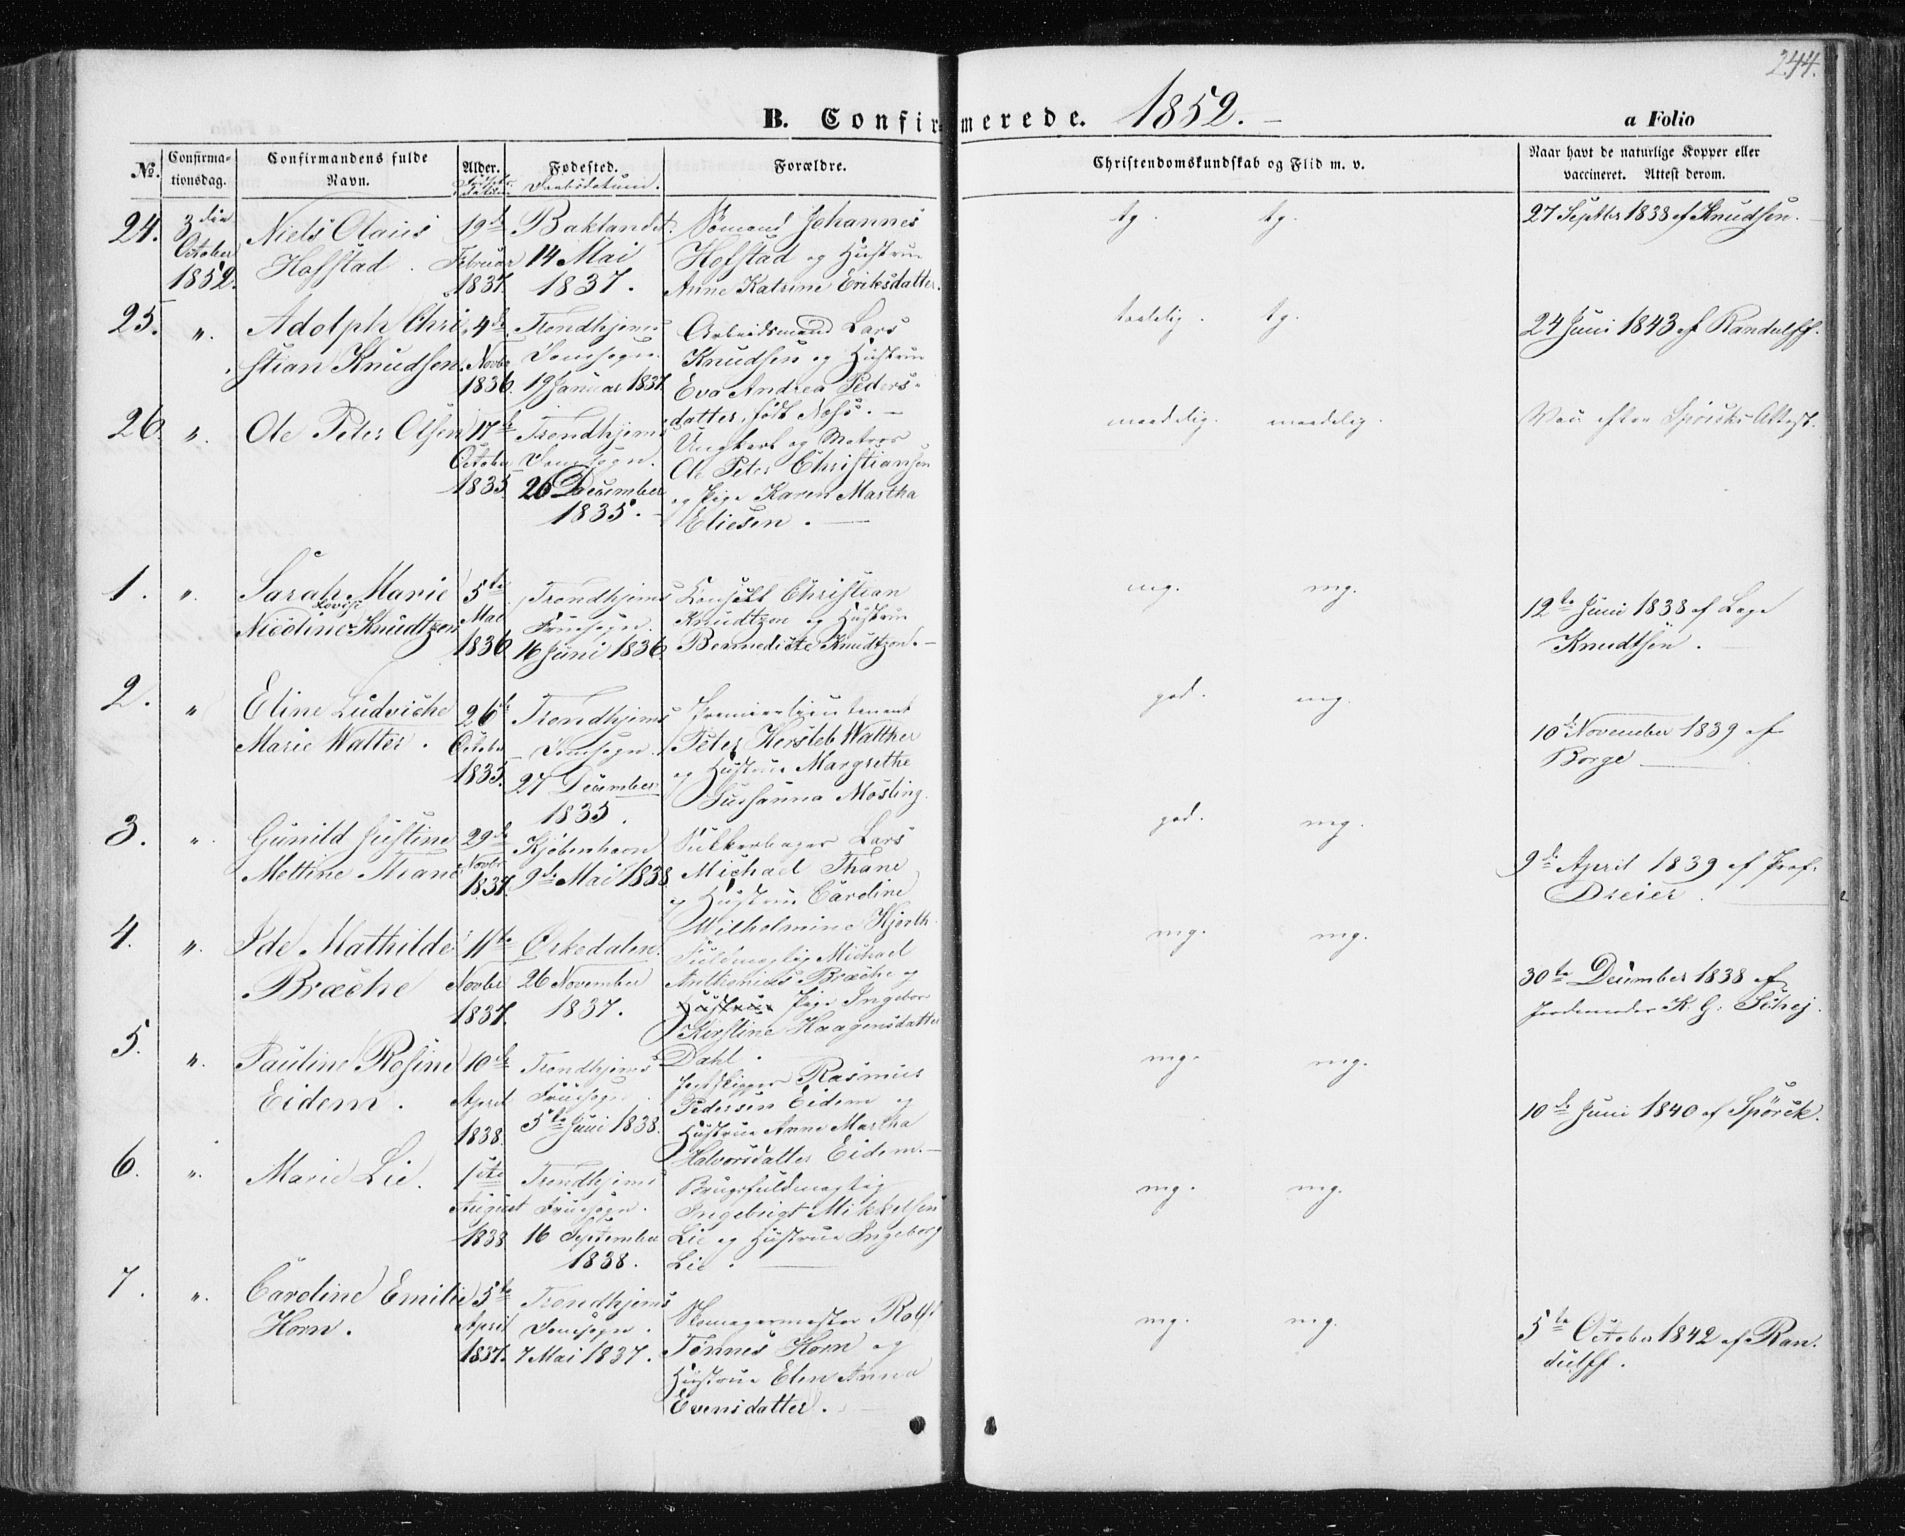 244.
B. Confirmerede. 1852.
a Folio
No.
Confirma-
tionsdag.
Confirmandens fulde
Navn.
Alder.
Fødested.
Daabsdatum.
Forældre.
Christendomskundskab og Flid m. v.
Naar havt de naturlige Kopper eller
vaccineret. Attest derom.
24. 3die Niels Olaus 19de Baklandet. Sømand Johannes tg. tg. 27 Septbr 1838 af Knudsen.
October Hofstad. Februar 14 Mai Hofstad og Hustrue
1852. 1837. 1837. Anne Katrine Eriksdatter.
25. " Adolph Chri 4de Trondhjems Arbeidsmand Lars taalelig. tg. 24 Juni 1843 af Randulff.
stian Knudsen. Novbr Domsogn. Knudsen og Hustrue
1836. 19 Januar 1837. Eva Andrea Peders-
datter, født Næss.
26. " Ole Peter Olsen 17de Trondhjems Ungkarl og Matros maadelig. maadelig. Vac: efter Spörcks Attest.
October Domsogn. Ole Peter Christiansen
1835 26 December og Pige Karen Martha
1835. Eliesen.
1. " Sarah Marie 5te Trondhjems Consul Christian mg. mg. 12te Juni 1838 af Læge
Lovise
Nicoline Knudtzon Mai Fruesogn. Knudtzon og Hustrue Knudtsen.
1836 16 Juni 1836. Bennedicte Knudtzon.
2. " Eline Ludviche 26de Trondhjems Premierlieutenant god. mg. 10de November 1839 af
Marie Walter. October Domsogn. Peter Kersteb Walther Borge
1835. 27 December og Hustrue Margrethe
1835. Susanna Møsling.
3. " Gunild Justine 29de Kjøbenhavn Sukkerbager Lars god. mg. 9de April 1839 af Prof.
Mettine Thane Novbr 9de Mai 1838. Michael Thane Dreier.
1837. og Hustrue Caroline
Wilhelmine Hjorth.
4. " Ide Mathilde 11te Ørkedalen. Fuldmægtig Michael mg. mg. 30te December 1838 af
Bræche Novbr 26 November Anthonius Bræche og Jordemoder K. G. Schej.
1837. 1837. Hustrue Pige Ingebor
Kirstine Haagensdatter
Dahl.
5. " Pauline Rosine 10de Trondhjems Rasmus mg. mg. 10de Juni 1840 af Spörck.
Eidem. April Fruesogn. Pedersen Eidem og
1838. 5te Juni 1838. Hustrue Anne Martha
Halvorsdatter Eidem.
6. " Marie Lie. 1ste Trondhjems Brugsfuldmægtig mg. mg.
August Fruesogn. Ingebrigt Mikkelsen
1838 16 September Lie og Hustrue Ingeborg
1838. Lie.
7. " Caroline Emilie 5te Trondhjems Skomagermester Rolf mg. mg. 5te October 1842 af Ran-
Horn. April Domsogn. Tønnes Horn og dulff.
1837. 7 Mai 1837. Hustrue Elen Anna
Evensdatter.